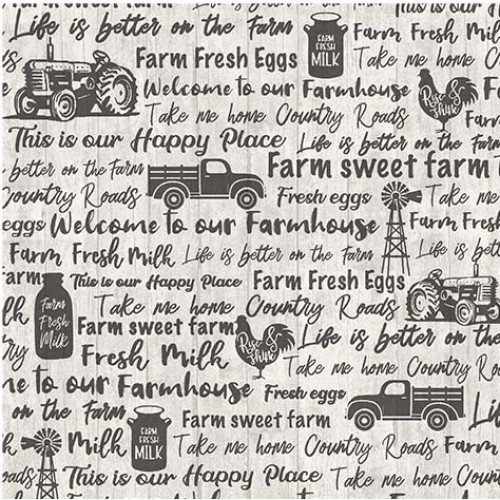 Life is better on the Farm
Farm Fresh Eggs
FARM
FRESH
MILK
Farm Fresh
Take me home C
Welcome to our Farmhouse
Rise &
shine
Take me home Country Roads
Farm
This is our Happy Place
Life is better on the Farm
better on the Farm
Farm sweet farm
Country Roads
Fresh eggs
Take me
eggs Welcome to our Farmhouse
Farm Fresh
Farm Fresh Milk
Life is better on the
Life is bett
arm
This is our Happy Place
Farm Fresh Eggs
Farm
Fresh
Milk
lk
Take me home Country Roads
Farm sweet farm
Rise &
shine
Life is better on the
ry
Fresh Milk
Take me home Country Ro
me to our Farmhouse
Fresh eggs
on the Farm
FARM
FRESH
MILK
Farm sweet farm
Life is
Milk
Take me home Country Roads
Farm
oads
This is our Happy Place
Take me home Country